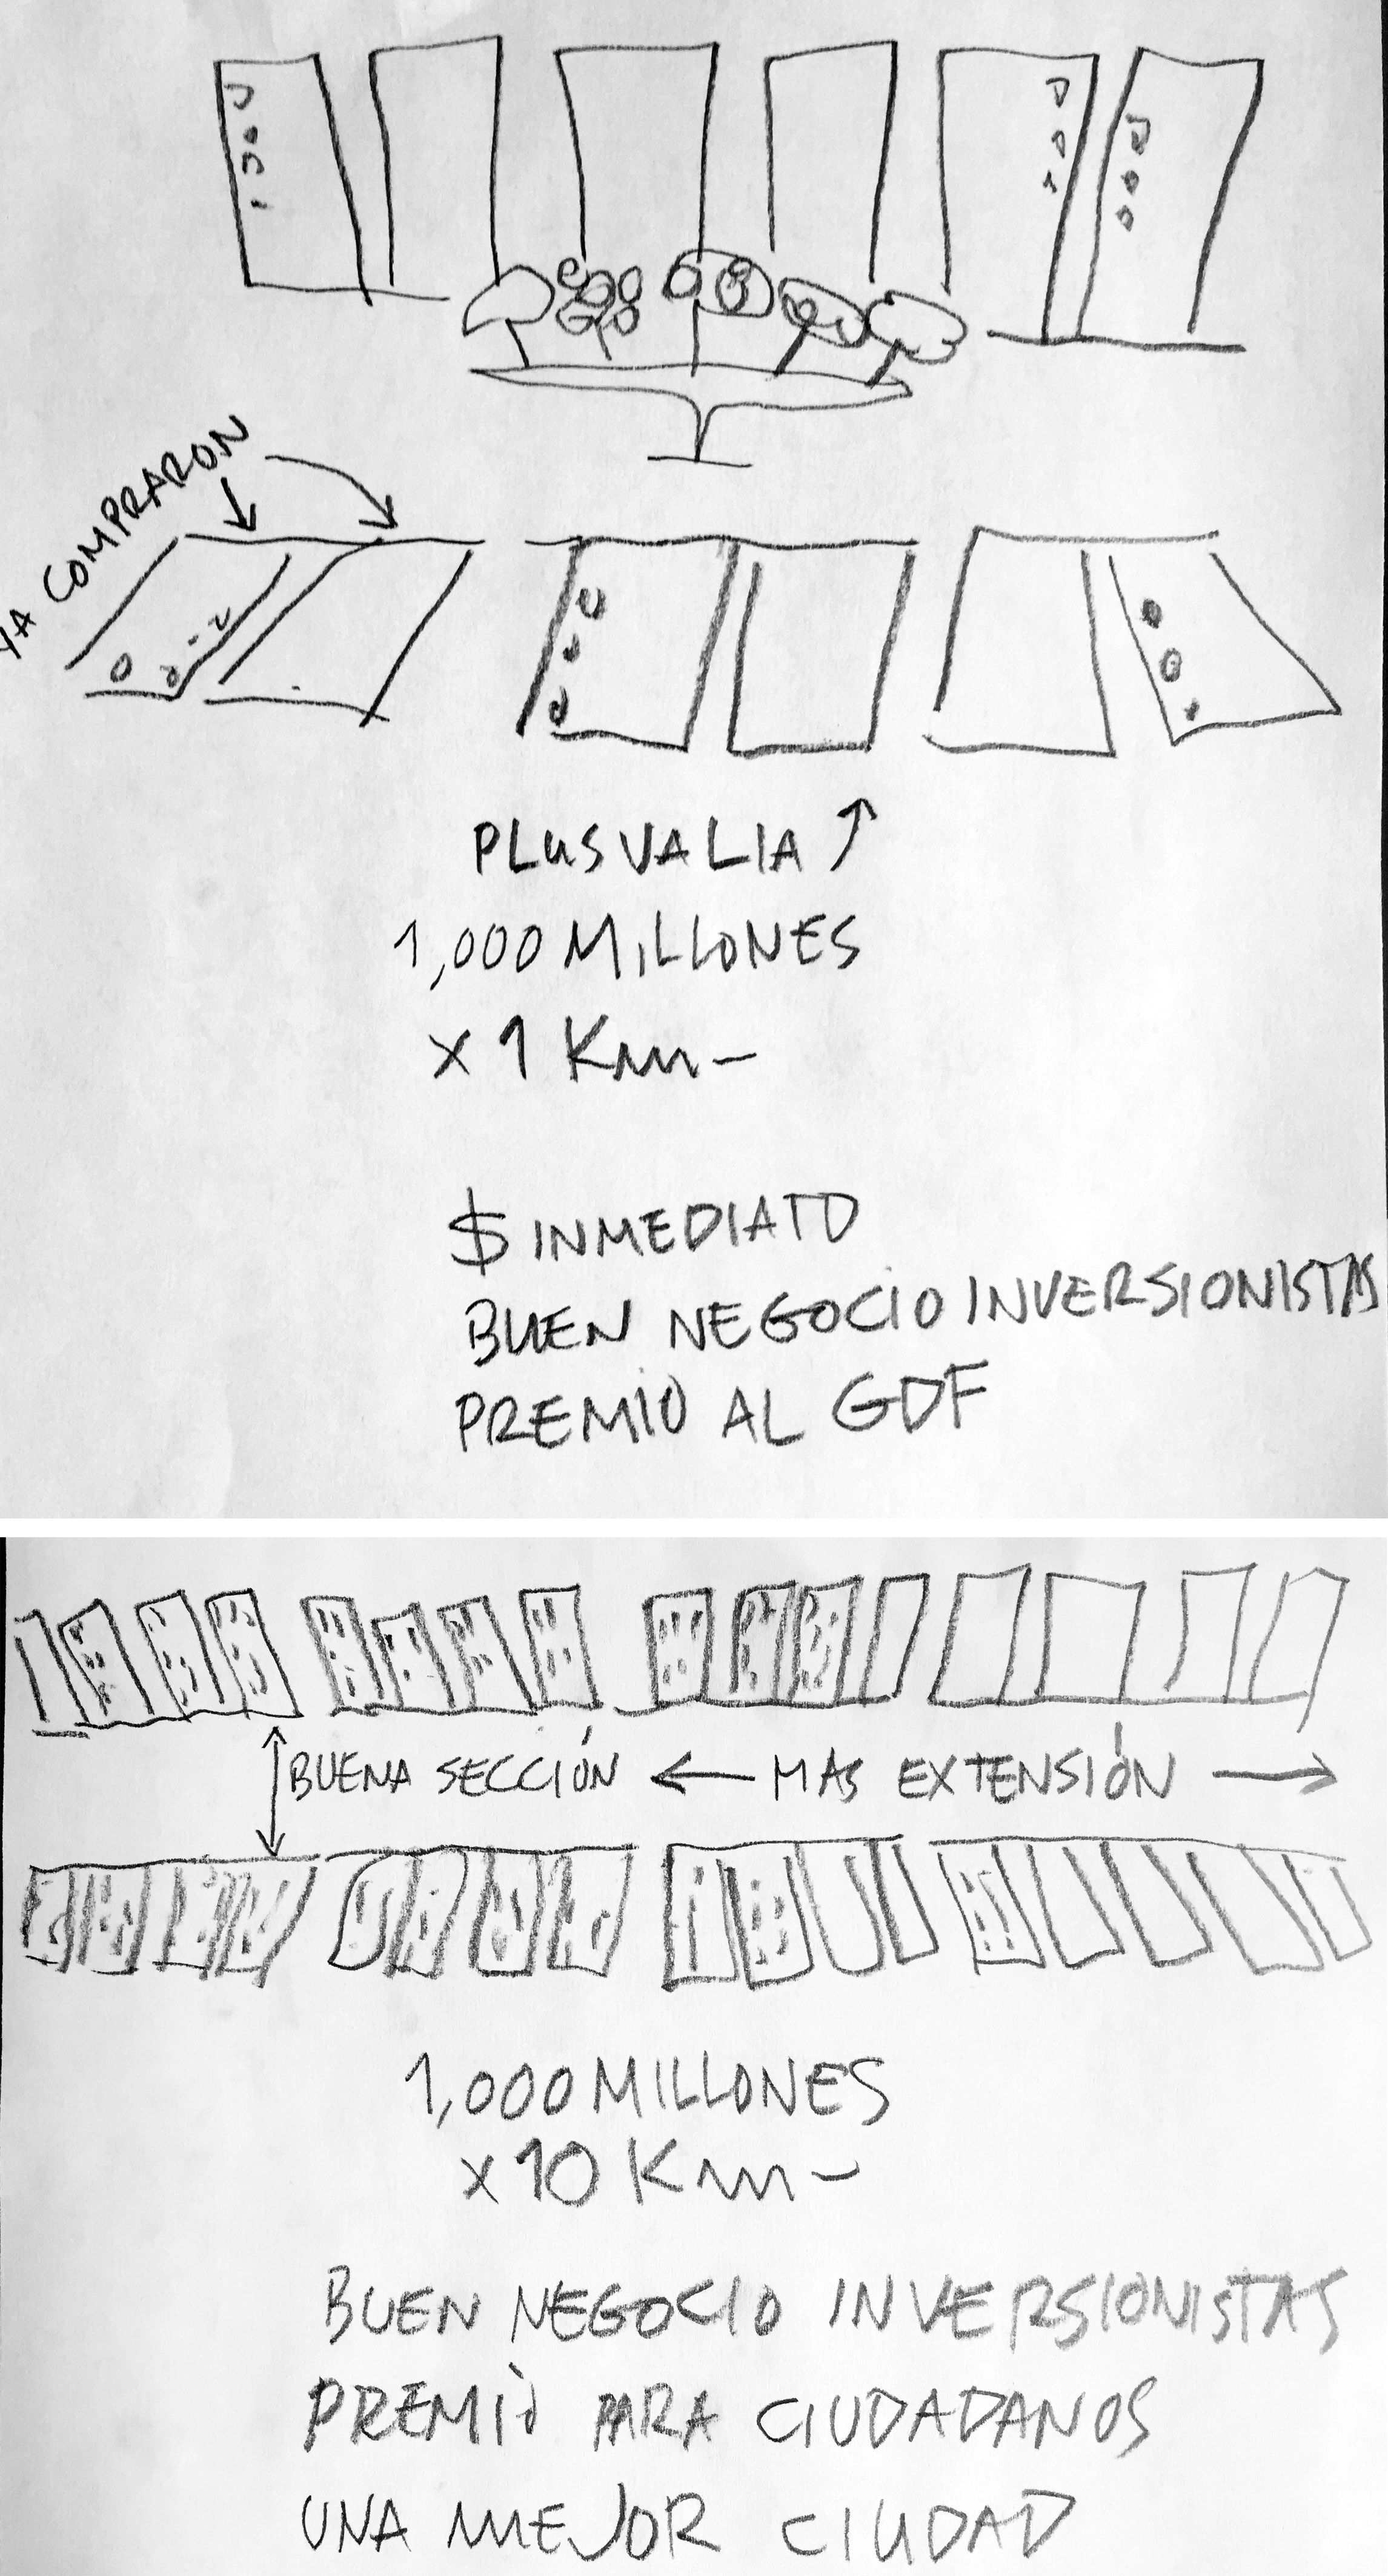 YA COMPRARON
PLUSVALIA
1,000 MILLONES
x 1 Km-
$ INMEDIATO
BUEN NEGOCIO INVERSIONISTAS
PREMIO AL GDF
BUENA SECCIÓN ← MAS EXTENSIÓN →
1,000 MILLONES
x 10 Km-
BUEN NEGOCIO INVERSIONISTAS
PREMIO PARA CIUDADANOS
UNA MEJOR CIUDAD